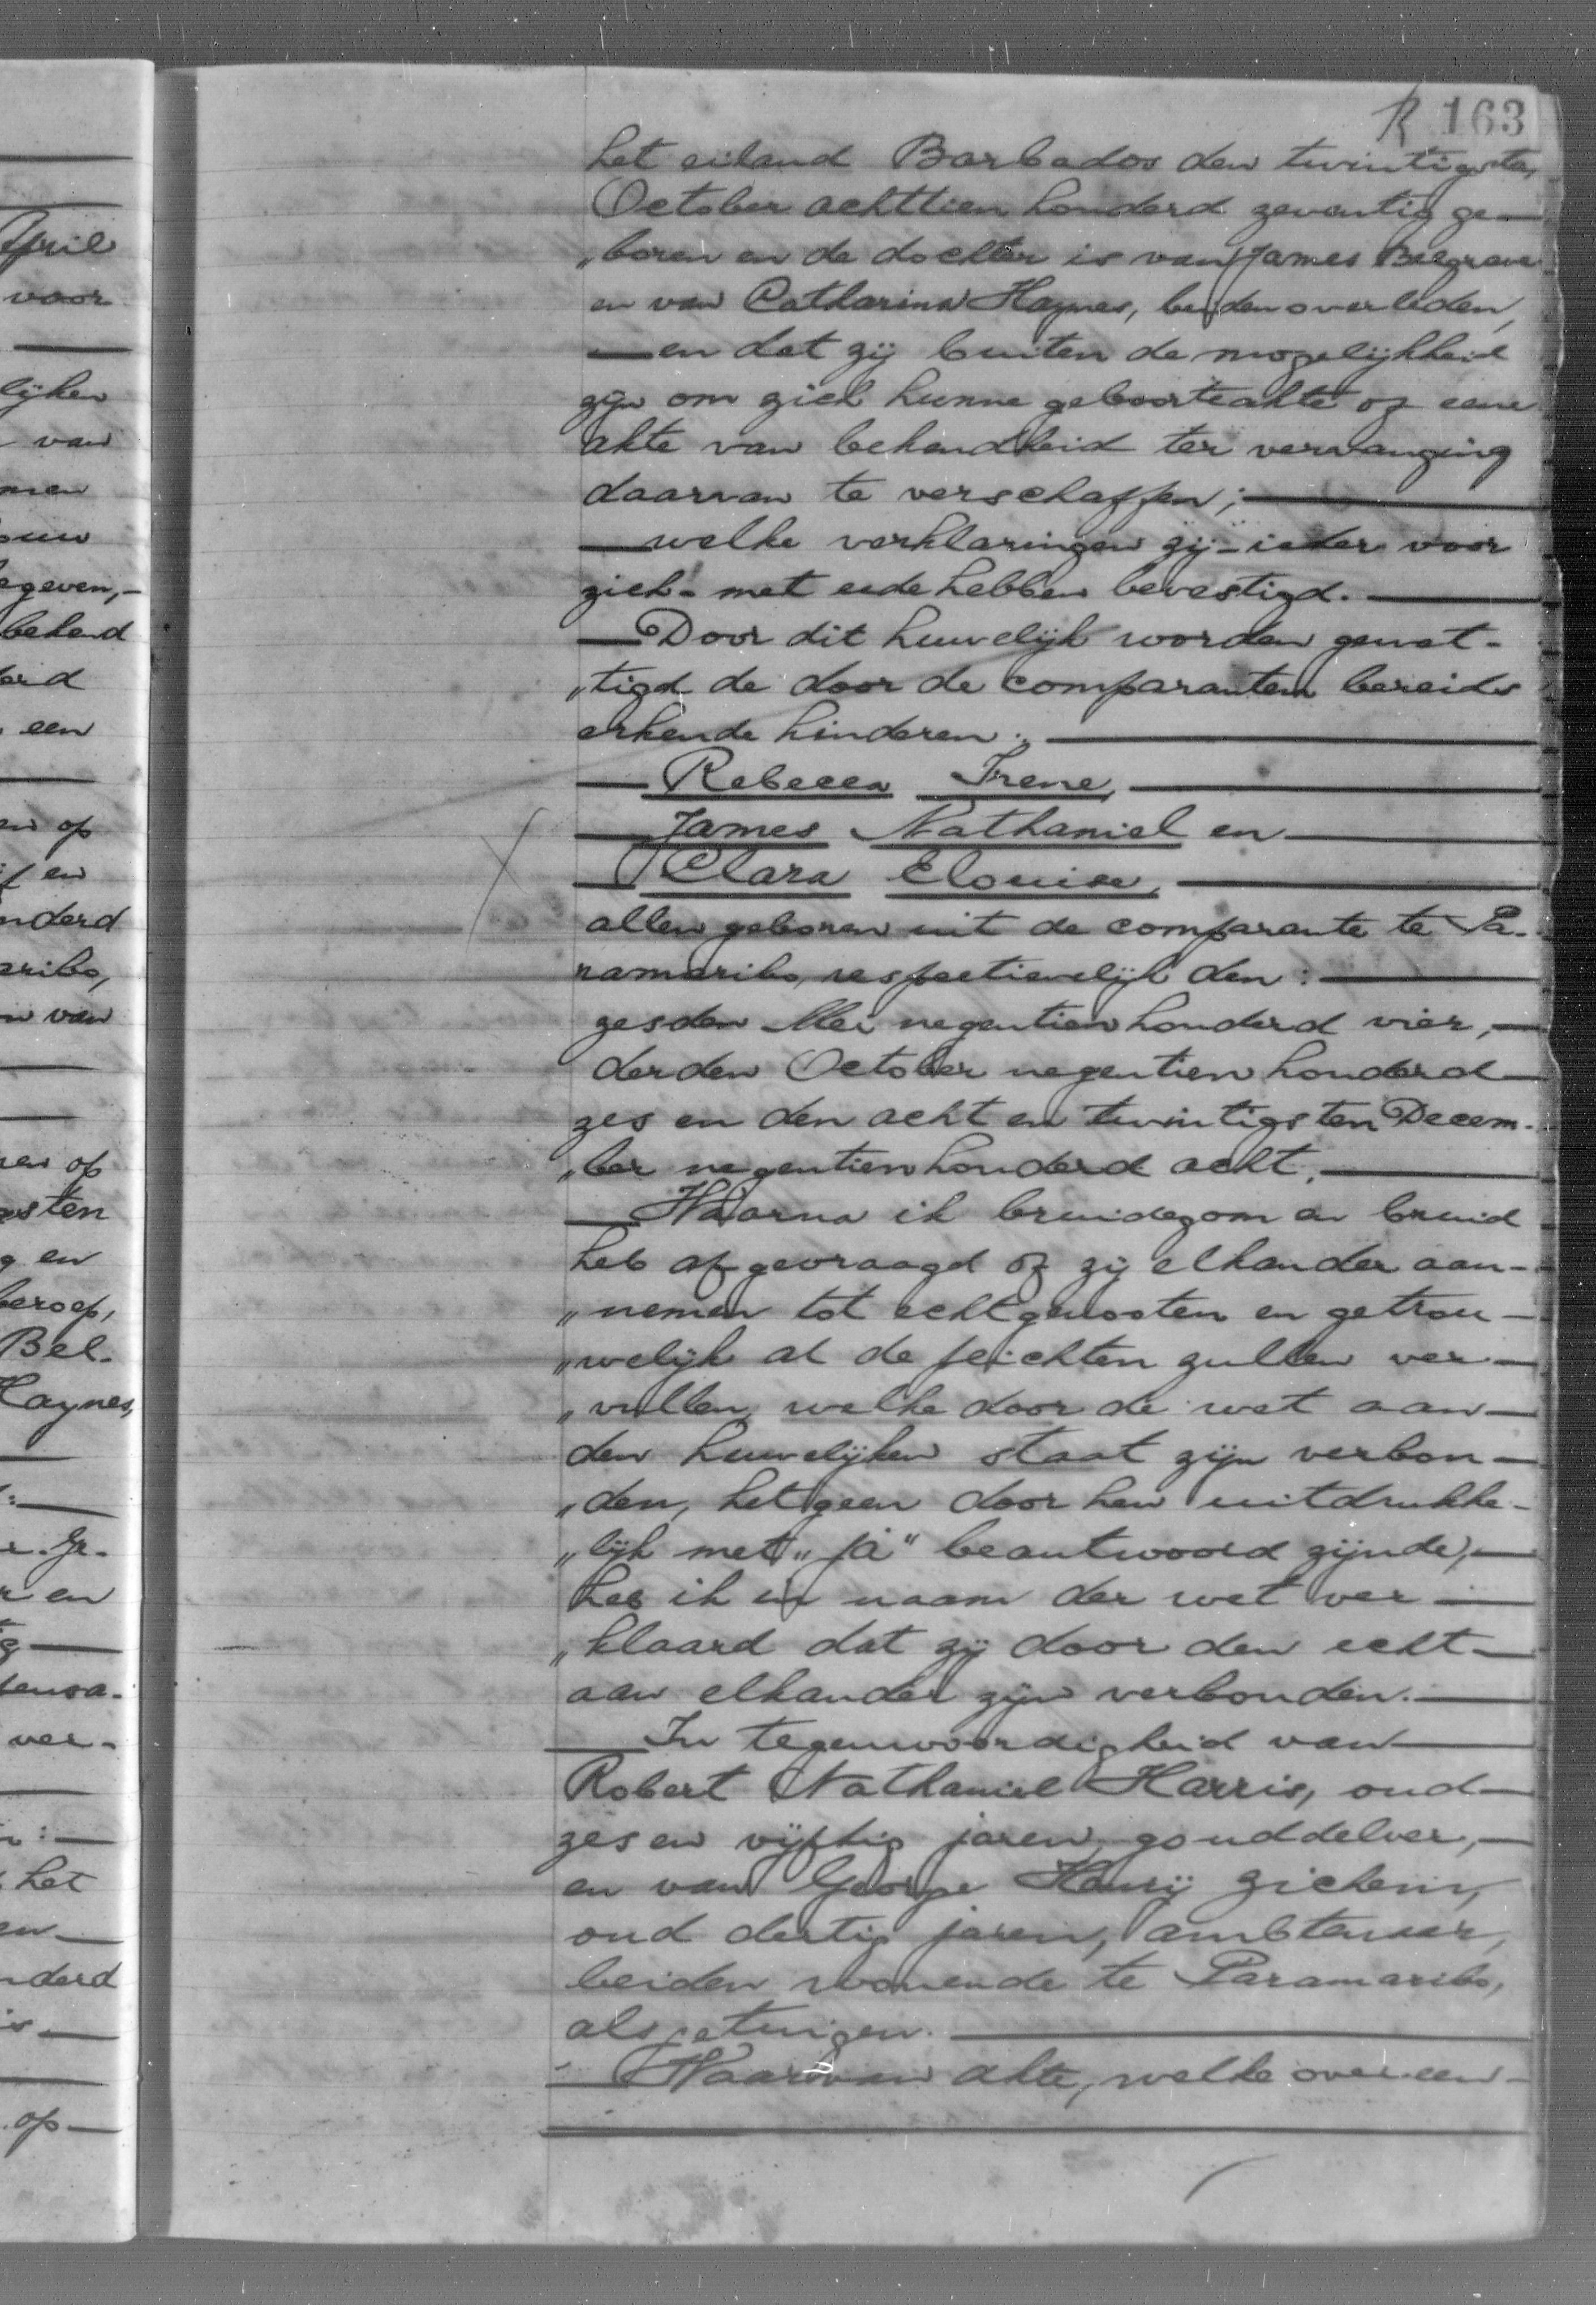 April
voor
lijken
van
men
ouw
egeven,-
bekend
erd
een
en op
f en
nderd
aribo,
n van
en op
sten
g en
beroep,
Bel-
Haynes,
:
r en
ver-
:
het
nderd
is
op
R 163
het eiland Barbados den twintigsten
October achttien honderd zeventig ge-
„boren en de dochter is van James Belgrave
en van Catharina Haynes, beiden overleden,
en dat zij buiten de mogelijkheid
zijn om zich hunne geboorteakte of eene
akte van bekendheid ter vervanging
daarvan te verschaffen;
welke verklaringen zij - ieder voor
zich - met eede hebben bevestigd.
Door dit huwelijk worden gewet-
„tigd de door de comparanten bereids
erkende kinderen:
Rebecca Irene,
James Nathaniel en
Clara Elouise,
allen geboren uit de comparante te Pa-
ramaribo, respectievelijk den:
zesden Mei negentien honderd vier,
derden October negentien honderd
zes en den acht en twintigsten Decem-
„ber negentien honderd acht.
Waarna ik bruidegom en bruid
heb afgevraagd of zij elkander aan-
„nemen tot echtgenooten en getrou-
„welijk al de plichten zullen ver-
„vullen, welke door de wet aan
den huwelijken staat zijn verbon-
„den, hetgeen door hen uitdrukke-
„lijk met „Ja" beantwoord zijnde,
heb ik in naam der wet ver-
„klaard dat zij door den echt
aan elkander zijn verbonden.
In tegenwoordigheid van
Robert Nathaniel Harris, oud
zes en vijftig jaren, gouddelver,
en van George Henrij Zichem,
oud dertig jaren, ambtenaar,
beiden wonende te Paramaribo,
als getuigen.
Waarvan akte, welke overeen-